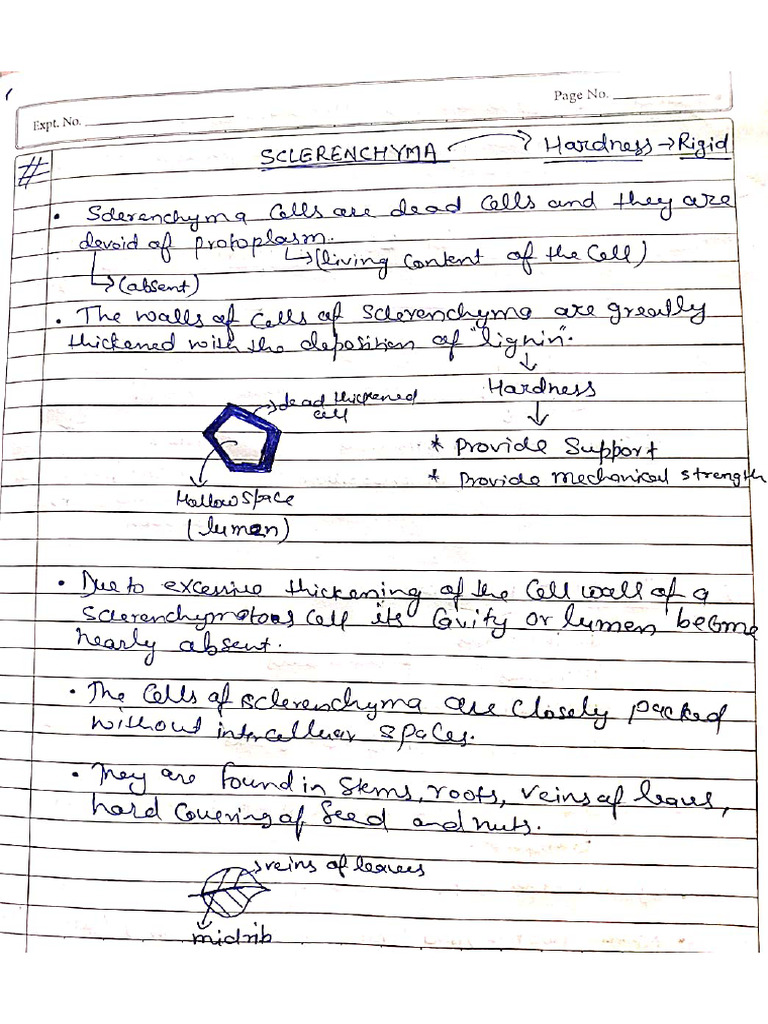 Page No.
Expt. No.
# SCLERENCHYMA → Hardness → Rigid
• Sclerenchyma cells are dead cells and they are
devoid of protoplasm.
↳ (living content of the cell)
↳ (absent)
• The walls of cells of sclerenchyma are greatly
thickened with the deposition of "lignin".
↓
Hardness
↓
dead thickened
cell
* Provide Support
* Provide mechanical strength
Hallow space
(lumen)
• Due to excessive thickening of the cell wall of a
sclerenchymatous cell its cavity or lumen become
nearly absent.
• The cells of sclerenchyma are closely packed
without intercelluar spaces.
• They are found in stems, roots, veins of leaves,
hard covering of seed and nuts.
veins of leavees
midrib